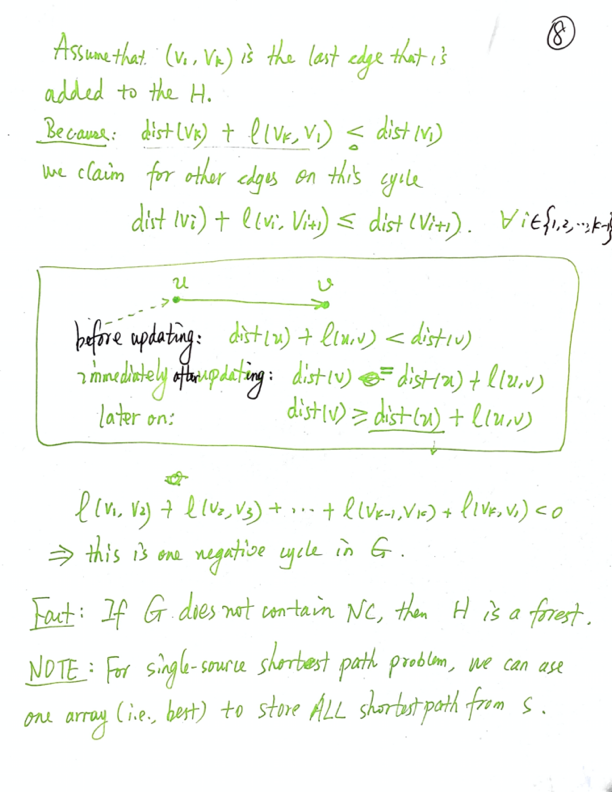 8
Assume that (v₁, vₖ) is the last edge that is
added to the H.
Because: dist(vₖ) + ℓ(vₖ, v₁) < dist(v₁)
we claim for other edges on this cycle
dist(vᵢ) + ℓ(vᵢ, vᵢ₊₁) ≤ dist(vᵢ₊₁). ∀ i ∈ {1,2,...,k-1}
u v
before updating: dist(u) + ℓ(u,v) < dist(v)
immediately after updating: dist(v) = dist(u) + ℓ(u,v)
later on: dist(v) ≥ dist(u) + ℓ(u,v)
ℓ(v₁, v₂) + ℓ(v₂, v₃) + ... + ℓ(vₖ₋₁, vₖ) + ℓ(vₖ, v₁) < 0
⇒ this is one negative cycle in G.
Fact: If G does not contain NC, then H is a forest.
NOTE: For single-source shortest path problem, we can use
one array (i.e., best) to store ALL shortest path from s.